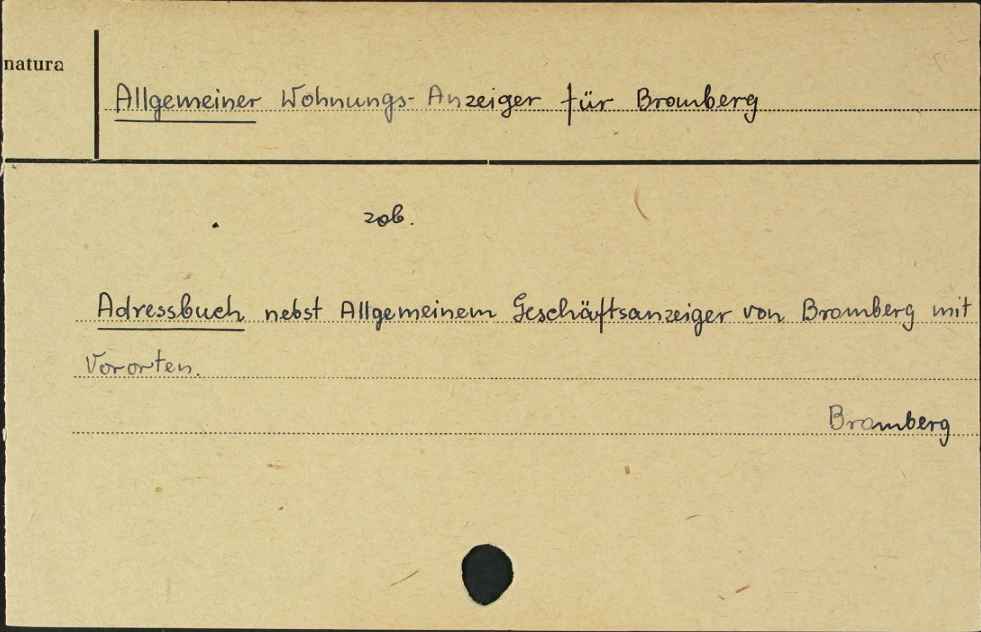 natura
Allgemeiner Wohnungs-Anzeiger für Bromberg
zob.
Adressbuch nebst Allgemeinem Geschäftsanzeiger von Bromberg mit
Vororten.
Bromberg